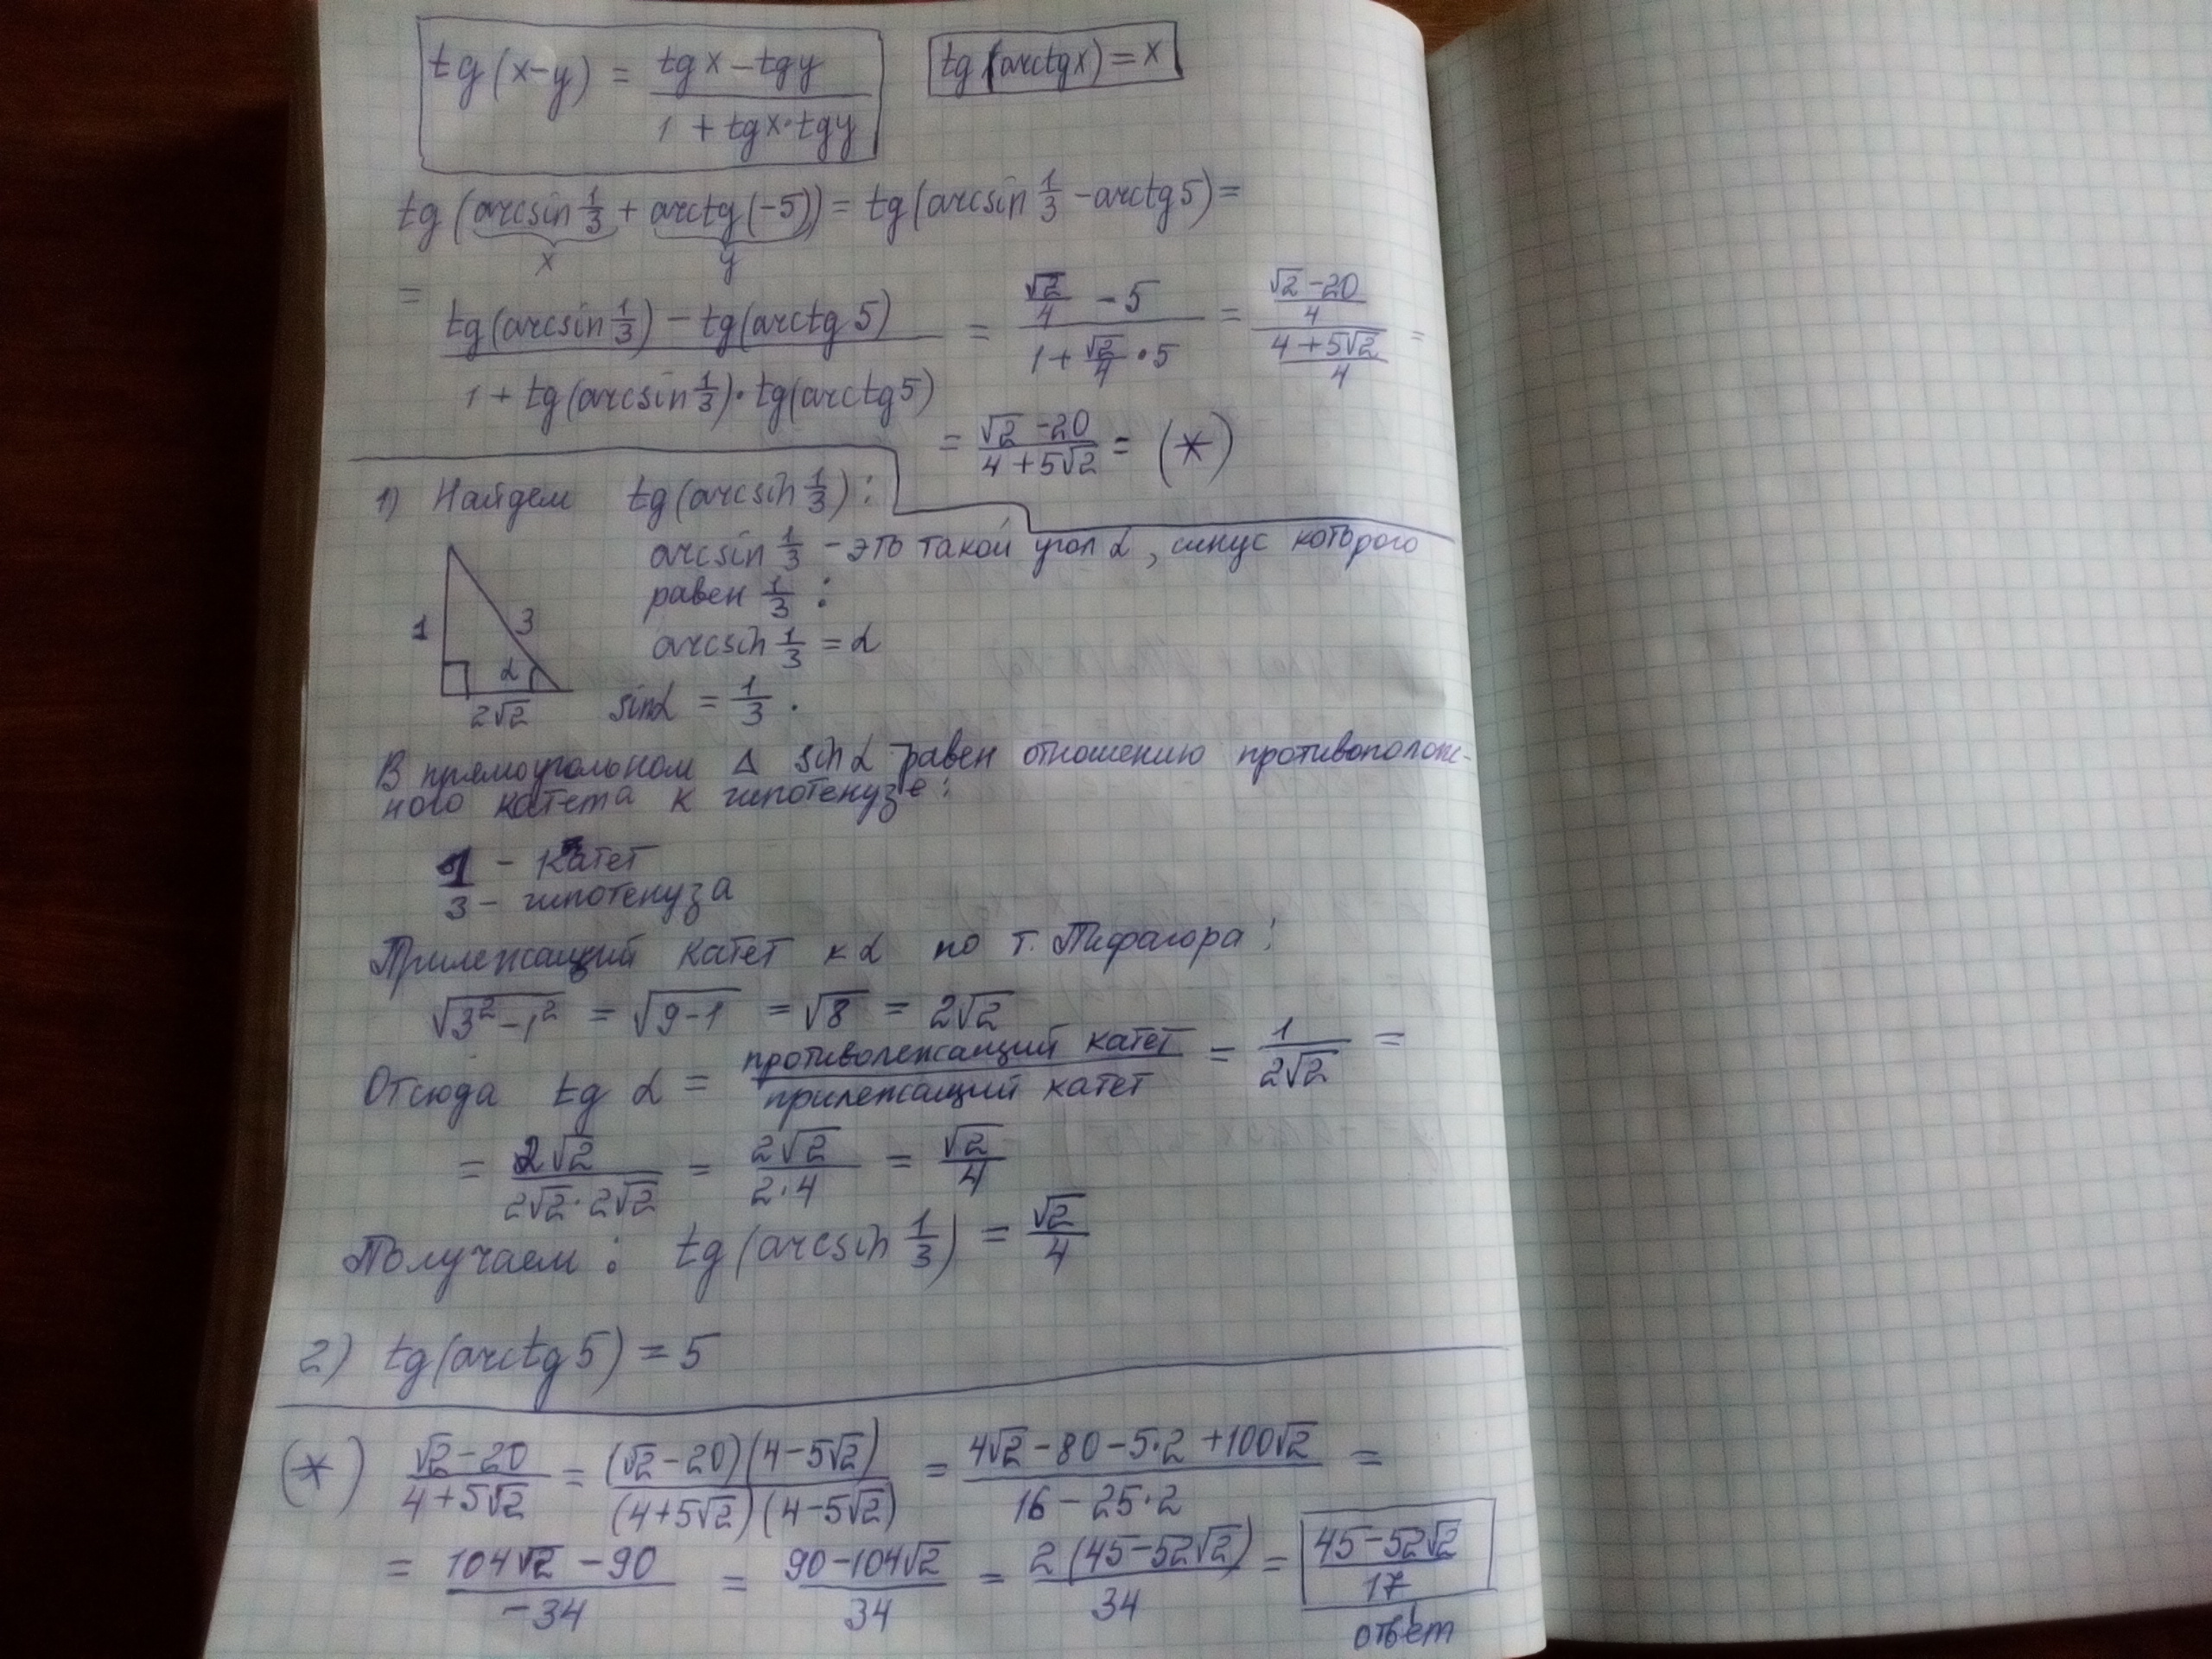 tg(x-y) = (tgx - tgy)/(1 + tgx·tgy)   tg(arctgx) = x
tg(arcsin 1/3 + arctg(-5)) = tg(arcsin 1/3 - arctg5) =
x y
= (tg(arcsin 1/3) - tg(arctg 5))/(1 + tg(arcsin 1/3)·tg(arctg5)) = (√2/4 - 5)/(1 + √2/4 · 5) = ((√2-20)/4)/((4+5√2)/4) =
= (√2-20)/(4+5√2) = (*)
1) Найдем tg(arcsin 1/3):
arcsin 1/3 - это такой угол α, синус которого
равен 1/3:
arcsin 1/3 = α
sinα = 1/3.
1 3 α 2√2
В прямоугольном Δ sinα равен отношению противополож-
ного катета к гипотенузе:
1 - катет
3 - гипотенуза
Прилежащий катет к α по т. Пифагора:
√(3²-1²) = √(9-1) = √8 = 2√2
Отсюда tg α = противолежащий катет/прилежащий катет = 1/(2√2) =
= 2√2/(2√2·2√2) = 2√2/(2·4) = √2/4
Получаем: tg(arcsin 1/3) = √2/4
2) tg(arctg5) = 5
(*) (√2-20)/(4+5√2) = (√2-20)(4-5√2)/((4+5√2)(4-5√2)) = (4√2-80-5·2+100√2)/(16-25·2) =
= (104√2-90)/(-34) = (90-104√2)/34 = 2(45-52√2)/34 = (45-52√2)/17
ответ